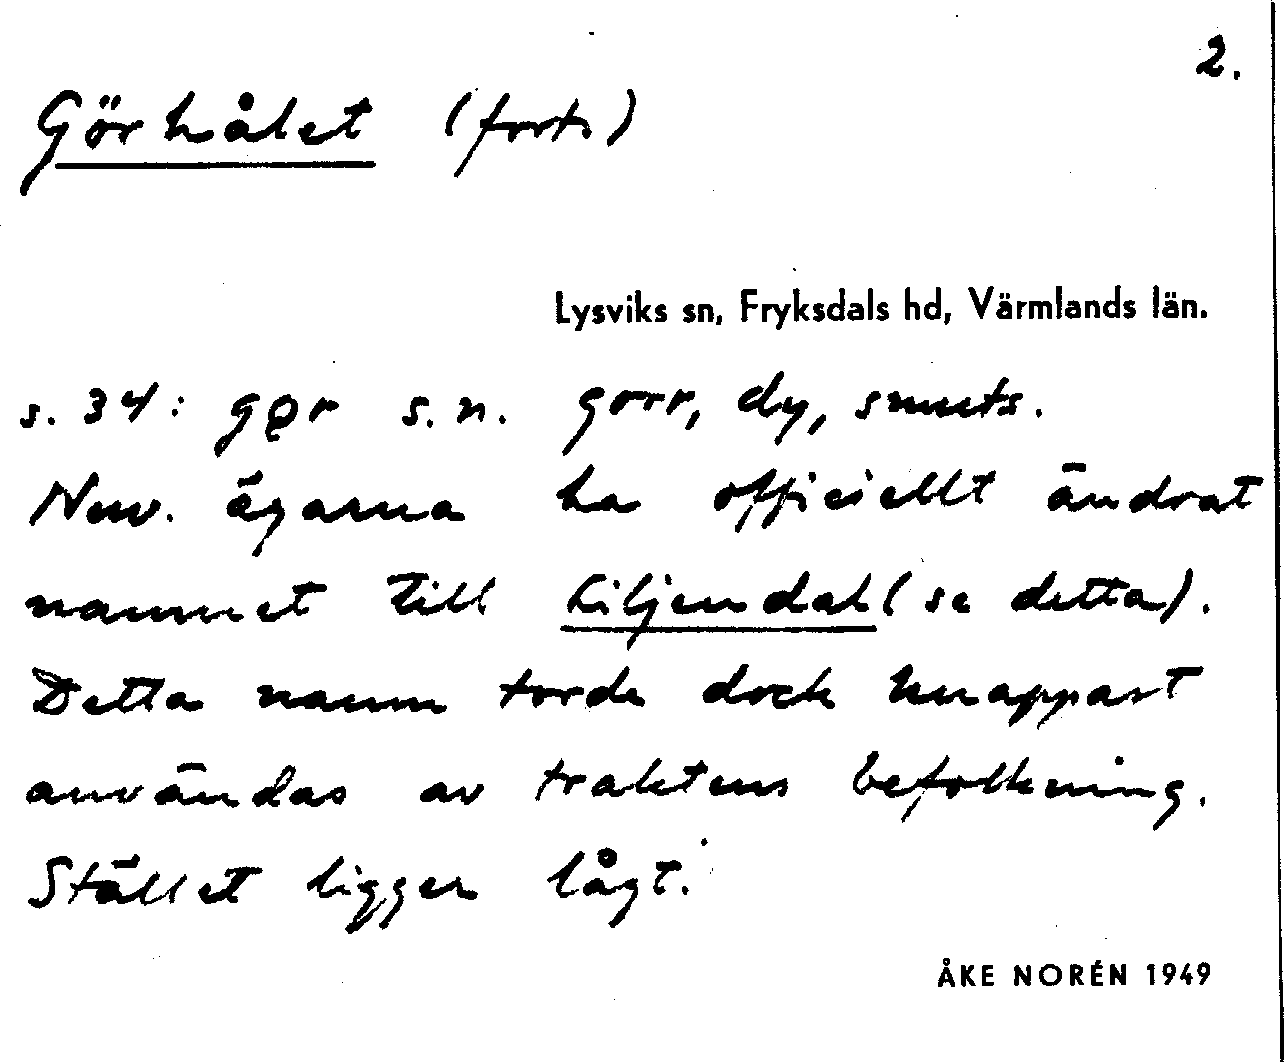 2.
Görhålet (forts)
Lysviks sn, Fryksdals hd, Värmlands län.
s. 34: gǫr s.n. gorr, dy, smuts.
Nuv. ägarna ha officiellt ändrat
namnet till Liljendal (se detta).
Detta namn torde dock knappast
användas av traktens befolkning.
Stället ligger lågt.
ÅKE NORÉN 1949